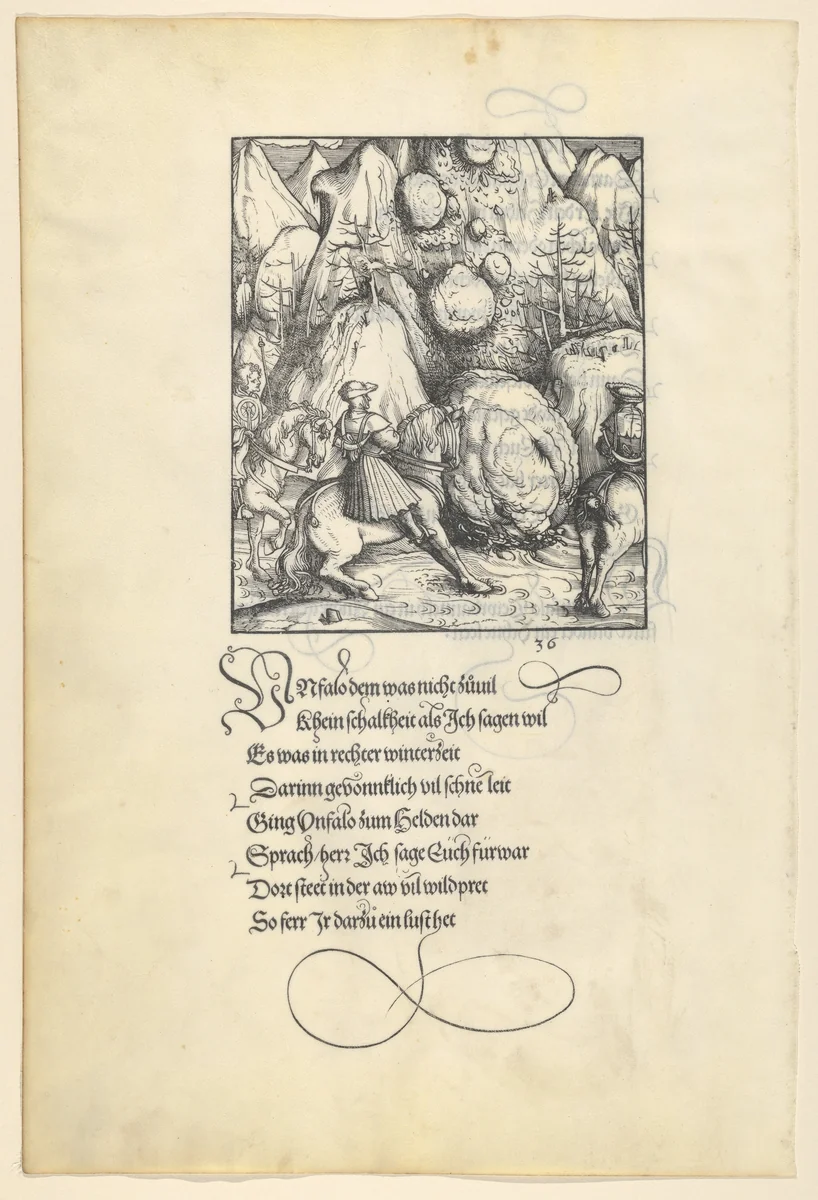 36
VNfalo dem was nicht zůuil
Khein schalkheit als Ich sagen wil
Es was in rechter winterzeit
Darinn gevonnklich vil schne leit
Ging Vnfalo zum Helden dar
Sprach / herr Ich sage Eüch fürwar
Dort steet in der aw vil wildpret
So ferr Ir darzů ein lust het